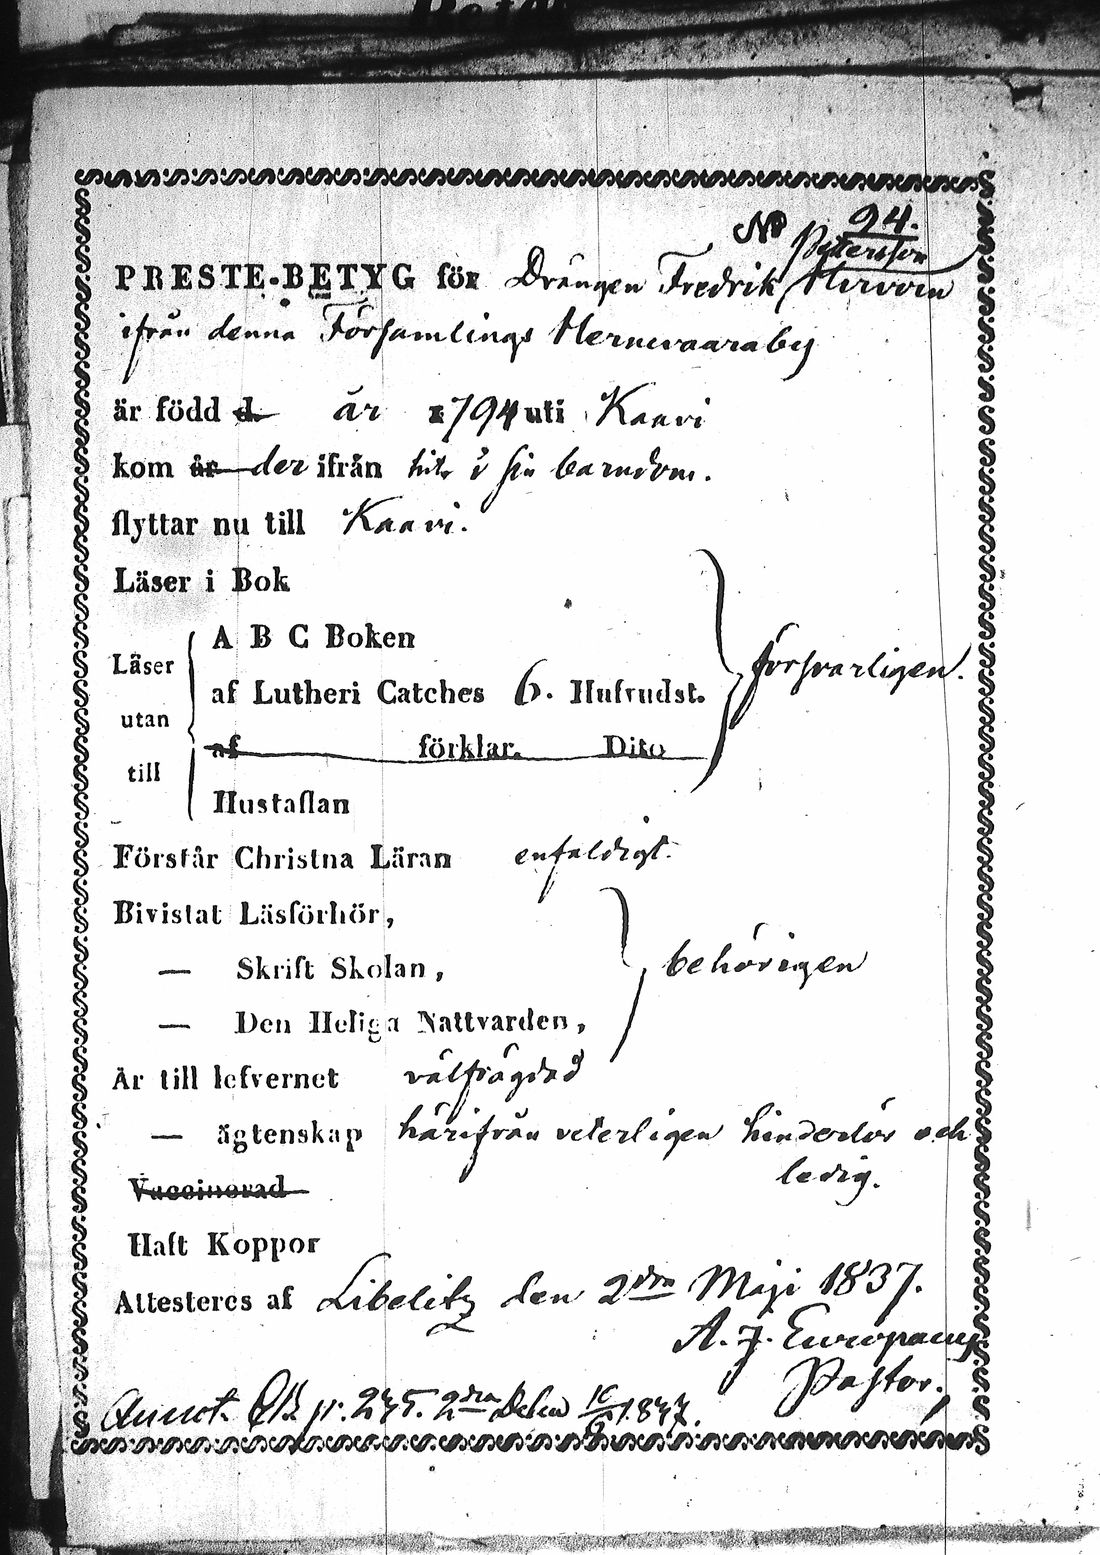 No 94.
Petersson
PRESTE-BETYG för Drängen Fredrik Hirvoin
ifrån denna Församlings Hernevaaraby
är född d. år 1794 uti Kaavi
kom år der ifrån hit i sin barndom.
flyttar nu till Kaavi.
Läser i Bok
A B C Boken
Läser
af Lutheri Catches 6. Hufvudst.
försvarligen.
utan
af förklar. Dito
till
Hustaflan
Förstår Christna Läran enfaldigt.
Bivistat Läsförhör,
— Skrift Skolan,
behörigen
— Den Heliga Nattvarden,
Är till lefvernet välfrägdad
— ägtenskap härifrån veterligen hinderlös och
ledig.
Vaccinerad
Haft Koppor
Attesteres af Libelitz den 2dra Maji 1837.
A. J. Europaeus
Pastor.
Annot. p. 275. 2dra Delen